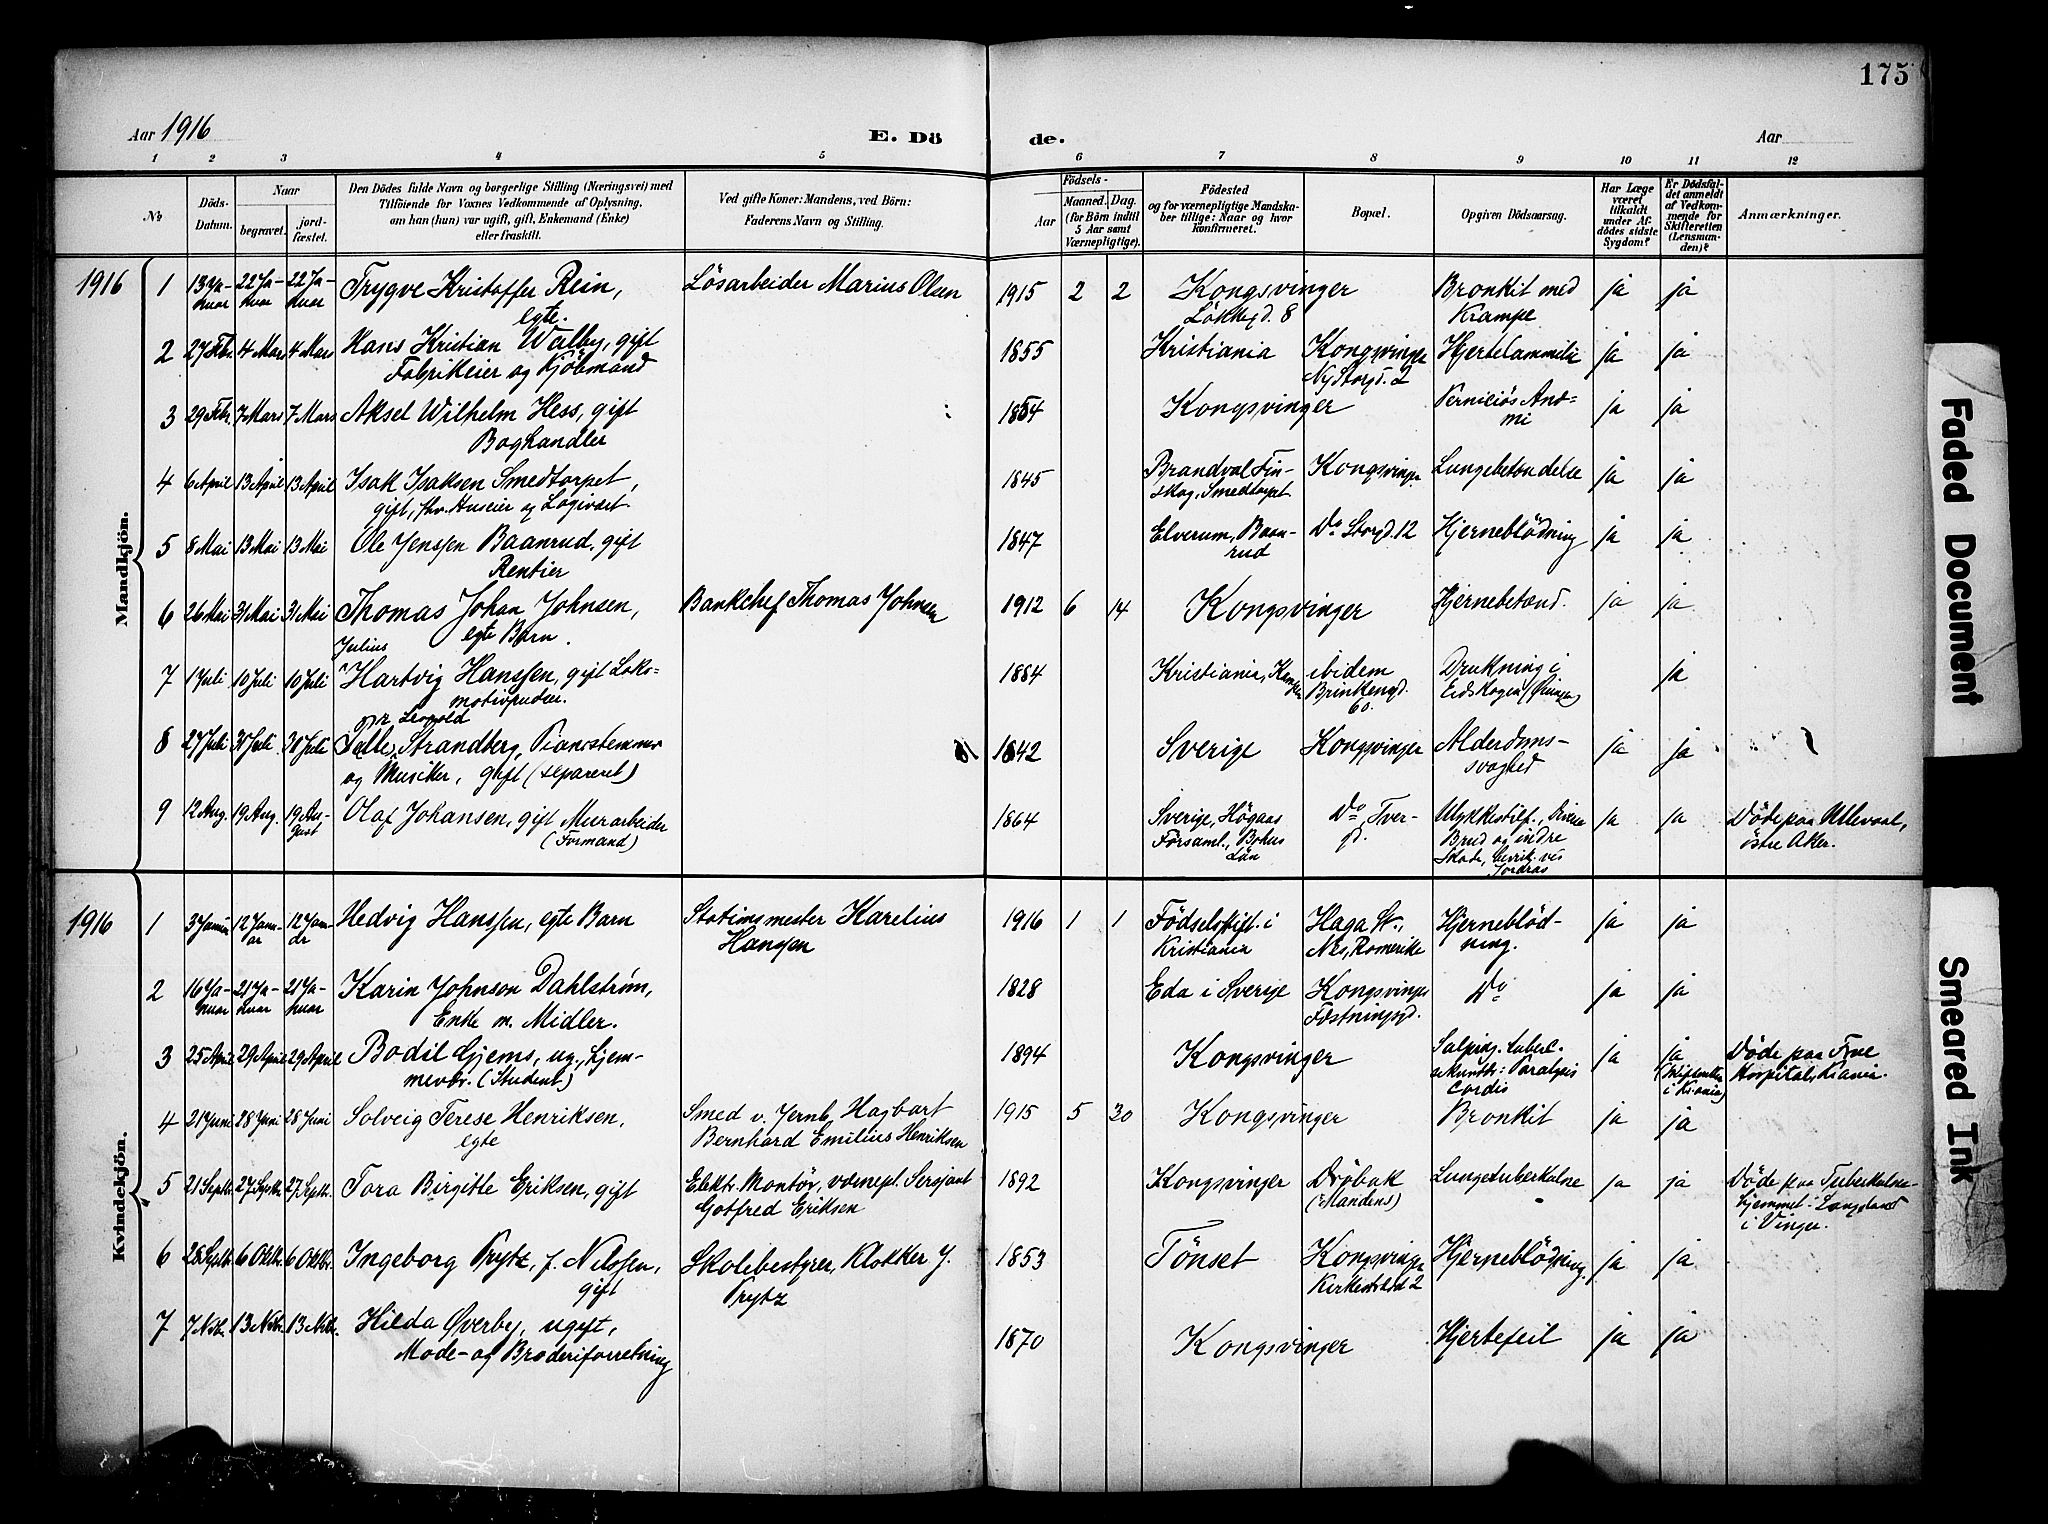 175
Aar 1916
E. Dö
de.
Aar
1 2 3 4 5 6 7 8 9 10 11 12
No
Döds-Datum.
Naar
begravet.
jord-fæstet.
Den Dödes fulde Navn og borgerlige Stilling (Næringsvei) med
Tilföiende for Voxnes Vedkommende af Oplysning,
om han (hun) var ugift, gift, Enkemand (Enke)
eller fraskilt.
Ved gifte Koner: Mandens, ved Börn:
Faderens Navn og Stilling.
Födsels-
Aar
Maaned. Dag.
(for Börn indtil
5 Aar samt
Værnepligtige).
Födested
og for værnepligtige Mandska-
ber tillige: Naar og hvor
konfirmeret.
Bopæl.
Opgiven Dödsaarsag.
Har Læge
været
tilkaldt
under Af-
dödes sidste
Sygdom?
Er Dödsfal-
det anmeldt
af Vedkom-
mende for
Skifteretten
(Lensman-
den)?
Anmærkninger.
Mandkjön.
1916 1 13 Ja- 22 Ja- 22 Ja- Trygve Kristoffer Rein, Lösarbeider Marius Olsen 1915 2 2 Kongsvinger Bronkit med ja ja
nuar nuar nuar egte. Løkkegd. 8 Krampe
2 27 Febr. 4 Mars 4 Mars Hans Kristian Walby, gift 1855 Kristiania Kongsvinger Hjertelammelse ja ja
Fabrikeier og Kjöbmand Ny Storgd. 2
3 29 Febr. 7 Mars 7 Mars Aksel Wilhelm Hess, gift 1854 Kongsvinger Perniciös Anæ- ja ja
Boghandler mi
4 6 April 13 April 13 April Isak Isaksen Smedtorpet, 1845 Brandval Fin- Kongsvinger Lungebetændelse ja ja
gift, fhv. Huseier og Logivært. skog, Smedtorpet
5 8 Mai 13 Mai 13 Mai Ole Jenssen Baanrud, gift 1847 Elverum, Baan- Do Storgd. 12 Hjerneblödning ja ja
Rentier rud
6 26 Mai 31 Mai 31 Mai Thomas Johan Johnsen, Bankchef Thomas Johnsen 1912 6 14 Kongsvinger Hjernebetænd. ja ja
egte Barn.
Julius
7 1 Juli 10 Juli 10 Juli Hartvig Hanssen, gift Loko- 1884 Kristiania, ibidem Drukning i ja
motivpudser. Brinkengd. Eidskogen
60.
Leopold
8 27 Juli 30 Juli 30 Juli Strandberg, Pianostemmer 1842 Sverige Kongsvinger Alderdoms- ja ja
og Musiker, gift (separeret) svaghed
9 12 Aug. 19 Aug. 19 Au- Olaf Johansen, gift Murarbeider 1864 Sverige, Högaas Do, Tver- Ulykkestilf., Diverse ja ja Döde paa Ullevaal,
gust (Formand) Församl., Bohus gd. Brud og indre östre Aker.
Län Skade,
Kvindekjön.
1916 1 3 Januar 12 Janu- 12 Jan- Hedvig Hanssen, egte Barn Stationsmester Karelius 1916 1 1 Födselsstift. i Haga St., Hjerneblöd- ja ja
ar Hansen Kristiania Nes, Romerike ning.
2 16 Ja- 21 Ja- 21 Ja- Karin Johnson Dahlstrøm, 1828 Eda i Sverige Kongsvinger Do ja ja
nuar nuar nuar Enke m. Midler. Fæstningsgd.
3 25 April 29 April 29 April Bodil Gjems, ug., hjem- 1894 Kongsvinger Salping. tuberc. ja ja Döde paa
meværende (Student) Paralysis Hospital, Kiania.
cordis i Kiania)
4 21 Juni 28 Juni 28 Juni Solveig Terese Henriksen, Smed v. Jernb. Hagbart 1915 5 30 Kongsvinger Bronkit ja ja
egte Bernhard Emilius Henriksen
5 21 Septb. 27 Septb. 27 Septb. Tora Birgitte Eriksen, gift Elektr. Montör, værnepl. Sersjant 1892 Kongsvinger Dröbak Lungetuberkulose ja ja Döde paa Tuberkulose-
Gotfred Eriksen (Mandens) hjemmet Langeland
i Vinger.
6 28 Septb. 6 Oktbr. 6 Oktbr. Ingeborg Prytz, f. Nilssen, Skolebestyrer, Klokker J. 1853 Tönset Kongsvinger Hjerneblödning ja ja
gift Prytz 2
7 7 Nvbr. 13 Nvbr. 13 Nvbr. Hilda Øverby, ugift, 1870 Kongsvinger Hjertefeil ja ja
Mode- og Broderiforretning
Faded Document
Smeared Ink